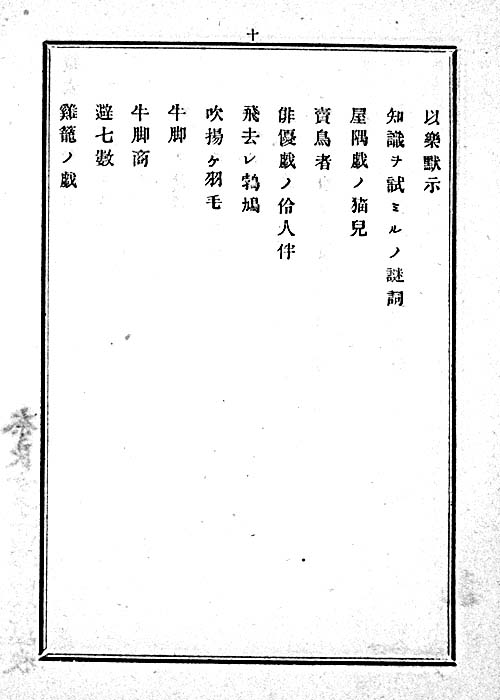 十
以樂默示
知識ヲ試ミルノ謎詞
屋隅戯ノ猫兒
賣鳥者
俳優戯ノ伶人伴
飛去レ鶉鳩
吹揚ケ羽毛
牛脚
牛脚商
避七數
雞籠ノ戯